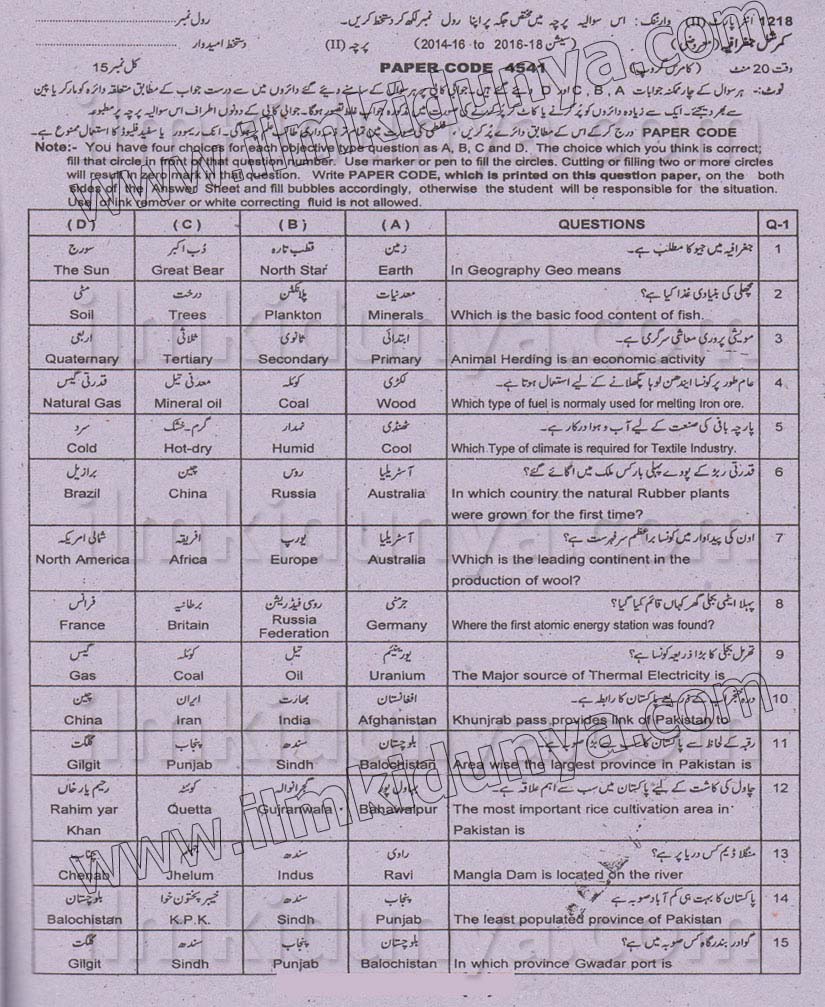 1218 انٹر پارٹ (II) وارننگ: اس سوالیہ پرچہ میں مختص جگہ پر اپنا رول نمبر لکھ کر دستخط کریں۔ رول نمبر
کمرشل جغرافیہ (معروضی) (سیشن 2014-16 to 2016-18) پرچہ (II) دستخط امیدوار
وقت 20 منٹ (کامرس گروپ) PAPER CODE 4541 کل نمبر 15
نوٹ:- ہر سوال کے چار ممکنہ جوابات A, B, C اور D دیئے گئے ہیں۔ جوابی کاپی پر ہر سوال کے سامنے دیئے گئے دائروں میں سے درست جواب کے مطابق متعلقہ دائرہ کو مارکر یا پین
سے بھر دیجئے۔ ایک سے زیادہ دائروں کو پُر کرنے یا کاٹ کر پُر کرنے کی صورت میں مذکورہ جواب غلط تصور ہوگا۔ جوابی کاپی کے دونوں اطراف اس سوالیہ پرچہ پر مطبوعہ
PAPER CODE درج کر کے اس کے مطابق دائرے پُر کریں، غلطی کی صورت میں تمام تر ذمہ داری طالب علم پر ہوگی۔ انک ریموور یا سفید فلیوڈ کا استعمال ممنوع ہے۔
Note:- You have four choices for each objective type question as A, B, C and D. The choice which you think is correct;
fill that circle in front of that question number. Use marker or pen to fill the circles. Cutting or filling two or more circles
will result in zero mark in that question. Write PAPER CODE, which is printed on this question paper, on the both
sides of the Answer Sheet and fill bubbles accordingly, otherwise the student will be responsible for the situation.
Use of ink remover or white correcting fluid is not allowed.
( D ) ( C ) ( B ) ( A ) QUESTIONS Q-1
سورج دُب اکبر قطب تارہ زمین جغرافیہ میں جیو کا مطلب ہے۔ 1
The Sun Great Bear North Star Earth In Geography Geo means
مٹی درخت پلانکٹن معدنیات مچھلی کی بنیادی غذا کیا ہے؟ 2
Soil Trees Plankton Minerals Which is the basic food content of fish.
اربعی ثلاثی ثانوی ابتدائی مویشی پروری معاشی سرگرمی ہے۔ 3
Quaternary Tertiary Secondary Primary Animal Herding is an economic activity
قدرتی گیس معدنی تیل کوئلہ لکڑی عام طور پر کونسا ایندھن لوہا پگھلانے کے لیے استعمال ہوتا ہے۔ 4
Natural Gas Mineral oil Coal Wood Which type of fuel is normaly used for melting Iron ore.
سرد گرم-خشک نمدار ٹھنڈی پارچہ بافی کی صنعت کے لیے آب و ہوا درکار ہے۔ 5
Cold Hot-dry Humid Cool Which Type of climate is required for Textile Industry.
برازیل چین روس آسٹریلیا قدرتی ربڑ کے پودے پہلی بار کس ملک میں اگائے گئے؟ 6
Brazil China Russia Australia In which country the natural Rubber plants
were grown for the first time?
شمالی امریکہ افریقہ یورپ آسٹریلیا اون کی پیداوار میں کونسا براعظم سرفہرست ہے؟ 7
North America Africa Europe Australia Which is the leading continent in the
production of wool?
فرانس برطانیہ روسی فیڈریشن جرمنی پہلا ایٹمی بجلی گھر کہاں قائم کیا گیا؟ 8
France Britain Russia Federation Germany Where the first atomic energy station was found?
گیس کوئلہ تیل یورینیم تھرمل بجلی کا بڑا ذریعہ کونسا ہے؟ 9
Gas Coal Oil Uranium The Major source of Thermal Electricity is
چین ایران بھارت افغانستان درہ خنجراب کے ذریعے پاکستان کا رابطہ ہے۔ 10
China Iran India Afghanistan Khunjrab pass provides link of Pakistan to
گلگت پنجاب سندھ بلوچستان رقبہ کے لحاظ سے پاکستان کا سب سے بڑا صوبہ ہے۔ 11
Gilgit Punjab Sindh Balochistan Area wise the largest province in Pakistan is
رحیم یار خاں کوئٹہ گوجرانوالہ بہاول پور چاول کی کاشت کے لیے پاکستان میں سب سے اہم علاقہ ہے۔ 12
Rahim yar Khan Quetta Gujranwala Bahawalpur The most important rice cultivation area in
Pakistan is
چناب جہلم سندھ راوی منگلا ڈیم کس دریا پر ہے؟ 13
Chenab Jhelum Indus Ravi Mangla Dam is located on the river
بلوچستان خیبر پختون خوا سندھ پنجاب پاکستان کا بہت ہی کم آباد صوبہ ہے 14
Balochistan K.P.K. Sindh Punjab The least populated province of Pakistan
گلگت سندھ پنجاب بلوچستان گوادر بندرگاہ کس صوبہ میں ہے؟ 15
Gilgit Sindh Punjab Balochistan In which province Gwadar port is
www.ilmkidunya.com
www.ilmkidunya.com
ilmkidunya.com